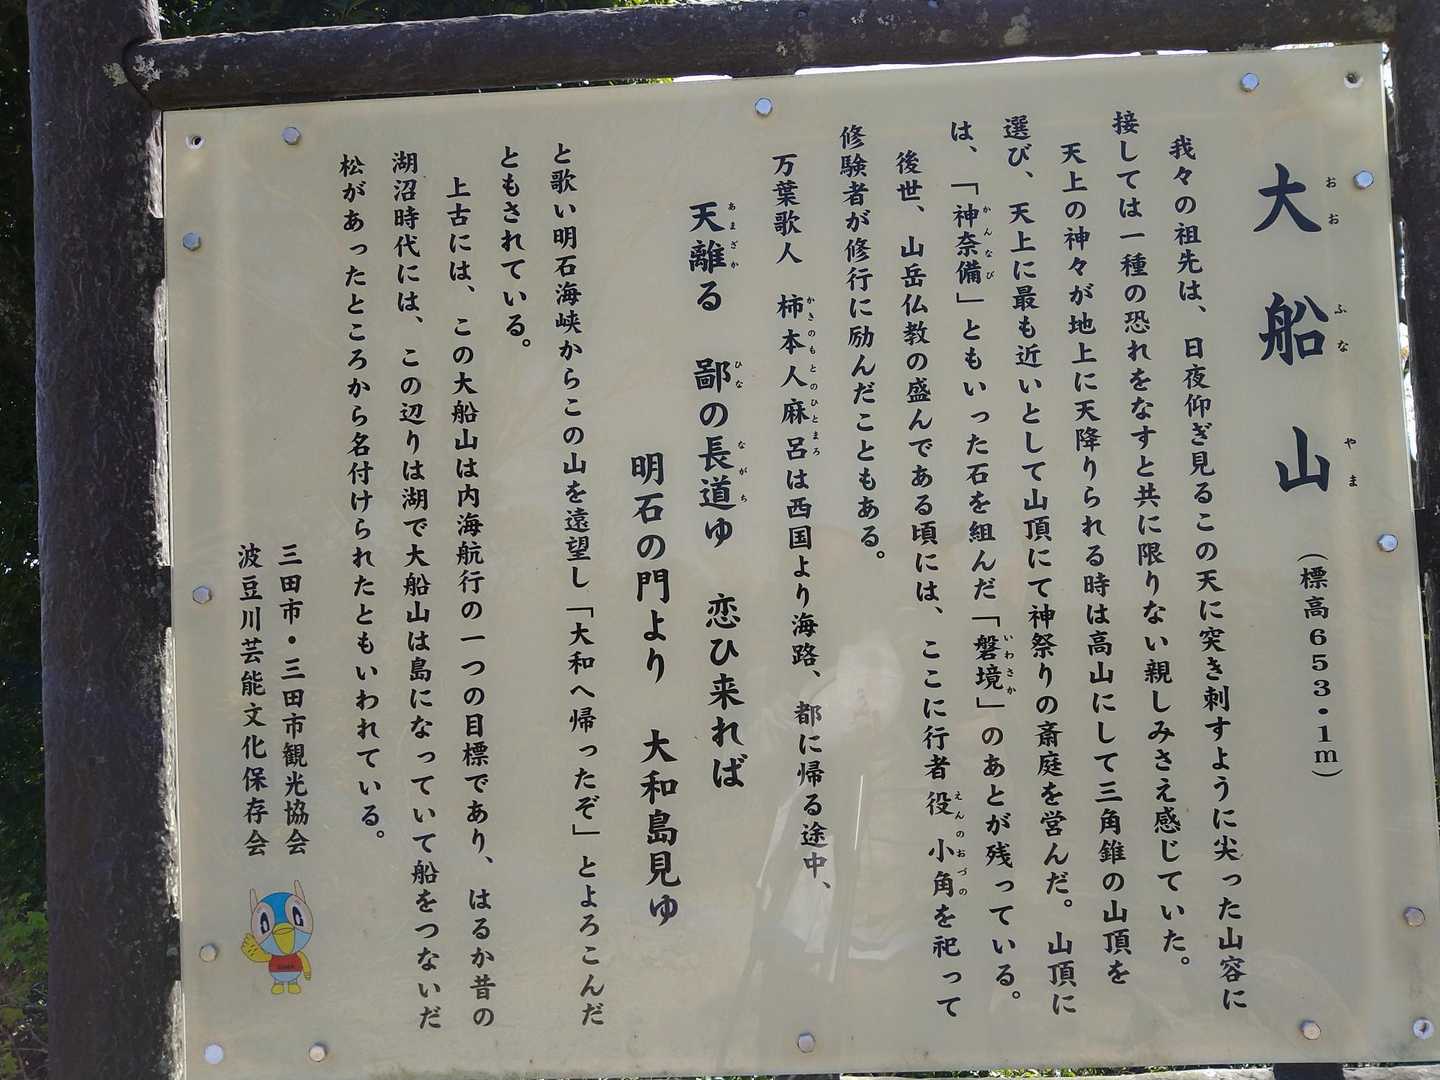 大船山 (標高653・1m)
おお ふな やま
我々の祖先は、日夜仰ぎ見るこの天に突き刺すように尖った山容に
接しては一種の恐れをなすと共に限りない親しみさえ感じていた。
天上の神々が地上に天降りられる時は高山にして三角錐の山頂を
選び、天上に最も近いとして山頂にて神祭りの斎庭を営んだ。山頂に
は、「神奈備」ともいった石を組んだ「磐境」のあとが残っている。
かんなび いわさか
後世、山岳仏教の盛んである頃には、ここに行者役小角を祀って
えんのおづの
修験者が修行に励んだこともある。
万葉歌人 柿本人麻呂は西国より海路、都に帰る途中、
かきのもとのひとまろ
天離る 鄙の長道ゆ 恋ひ来れば
あまざか ひな ながち
明石の門より 大和島見ゆ
と歌い明石海峡からこの山を遠望し「大和へ帰ったぞ」とよろこんだ
ともされている。
上古には、この大船山は内海航行の一つの目標であり、はるか昔の
湖沼時代には、この辺りは湖で大船山は島になっていて船をつないだ
松があったところから名付けられたともいわれている。
三田市・三田市観光協会
波豆川芸能文化保存会